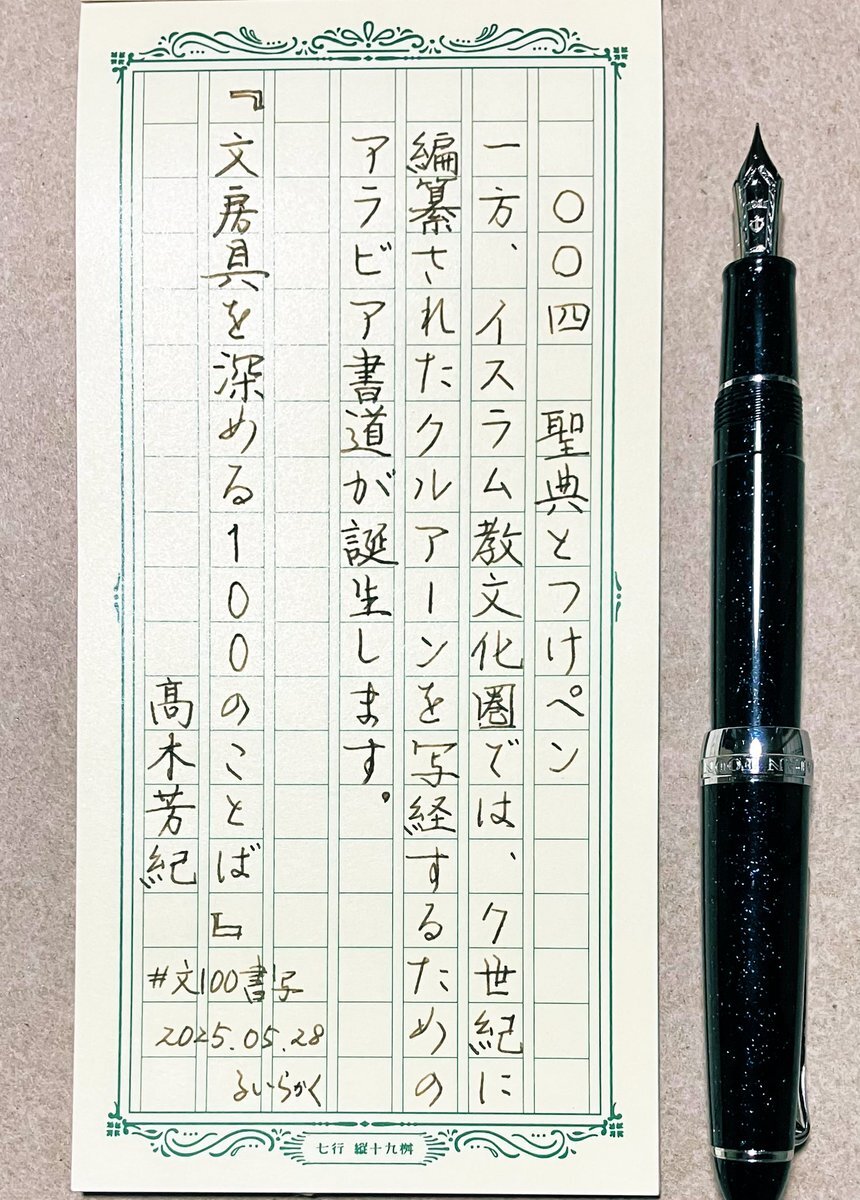 〇〇四　聖典とつけペン
一方、イスラム教文化圏では、7世紀に
編纂されたクルアーンを写経するための
アラビア書道が誕生します。
『文房具を深める100のことば』
髙木芳紀
#文100書写
2025.05.28
るいらかく
七行 縦十九桝